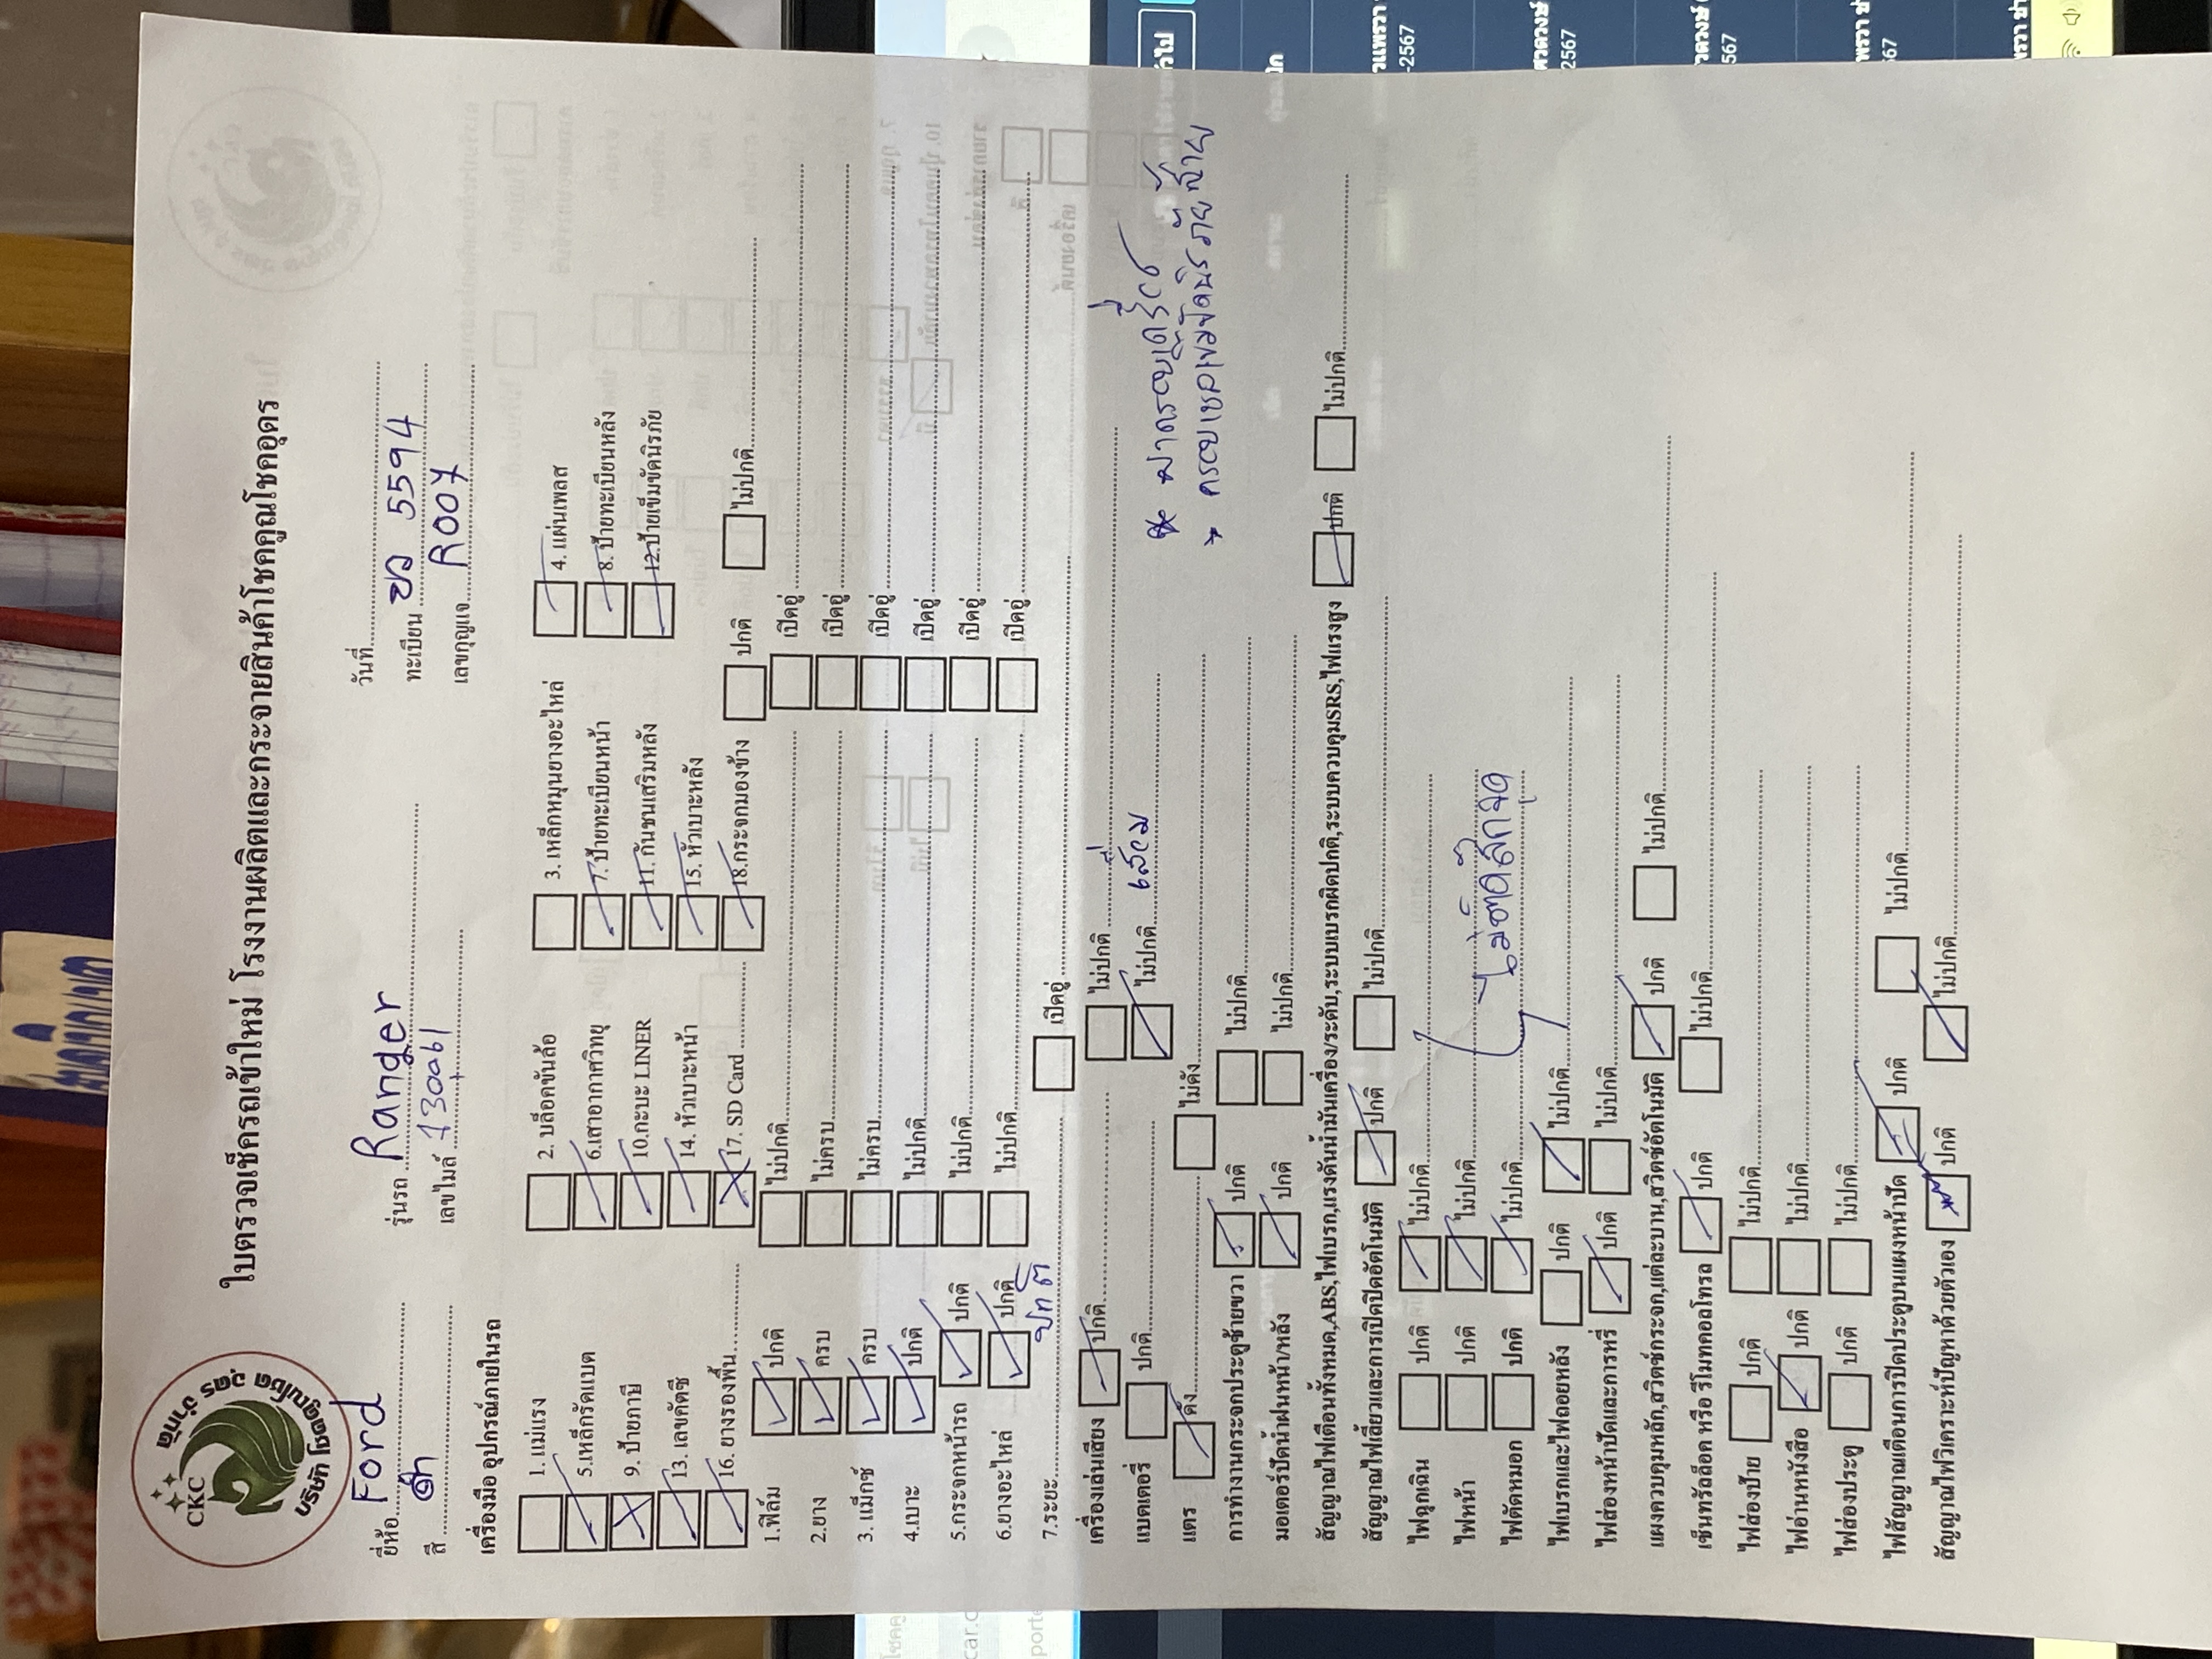 CKC
บริษัท โชคคูณโชค อุดร จำกัด
ใบตรวจเช็ครถเข้าใหม่ โรงงานผลิตและกระจายสินค้าโชคคูณโชคอุดร
ยี่ห้อ Ford รุ่นรถ Ranger วันที่
สี ดำ เลขไมล์ ทะเบียน ขว 5594
เลขกุญแจ R007
เครื่องมือ อุปกรณ์ภายในรถ
1. แม่แรง 2. บล็อคขันล้อ 3. เหล็กหมุนยางอะไหล่ 4. แผ่นเพลส
5.เหล็กรัดแบต 6.เสาอากาศวิทยุ 7.ป้ายทะเบียนหน้า 8. ป้ายทะเบียนหลัง
9. ป้ายภาษี 10.กะบะ LINER 11. กันชนเสริมหลัง 12.ป้ายเข็มขัดนิรภัย
13. เลขคัดซี 14. หัวเบาะหน้า 15. หัวเบาะหลัง
16. ยางรองพื้น 17. SD Card 18.กระจกมองข้าง ปกติ ไม่ปกติ
1.ฟิล์ม ปกติ ไม่ปกติ เปิดอยู่
2.ยาง ครบ ไม่ครบ เปิดอยู่
3. แม็กซ์ ครบ ไม่ครบ เปิดอยู่
4.เบาะ ปกติ ไม่ปกติ เปิดอยู่
5.กระจกหน้ารถ ปกติ ไม่ปกติ เปิดอยู่
6.ยางอะไหล่ ปกติ ไม่ปกติ เปิดอยู่
7.ระยะ ปกติ เปิดอยู่
เครื่องเล่นเสียง ปกติ ไม่ปกติ
แบตเตอรี่ ปกติ ไม่ปกติ เสื่อม
แตร ดัง ไม่ดัง
* ครอบเซลเข็มขัดนิรภัยซ้าย
การทำงานกระจกประตูซ้ายขวา ปกติ ไม่ปกติ
มอเตอร์ปัดน้ำฝนหน้า/หลัง ปกติ ไม่ปกติ
สัญญาณไฟเตือนทั้งหมด,ABS,ไฟเบรก,แรงดันน้ำมันเครื่อง/ระดับ,ระบบเบรกผิดปกติ,ระบบควบคุมSRS,ไฟแรงสูง ปกติ ไม่ปกติ
สัญญาณไฟเลี้ยวและการเปิดปิดอัตโนมัติ ปกติ ไม่ปกติ
ไฟฉุกเฉิน ปกติ ไม่ปกติ
ไฟหน้า ปกติ ไม่ปกติ
ไฟตัดหมอก ปกติ ไม่ปกติ
ไฟเบรกและไฟถอยหลัง ปกติ ไม่ปกติ
ไฟส่องหน้าปัดและการหรี่ ปกติ ไม่ปกติ
แผงควบคุมหลัก,สวิตช์กระจก,แต่ละบาน,สวิตช์อัตโนมัติ ปกติ ไม่ปกติ
เซ็นทรัลล็อค หรือ รีโมทคอลโทรล ปกติ ไม่ปกติ
ไฟส่องป้าย ปกติ ไม่ปกติ
ไฟอ่านหนังสือ ปกติ ไม่ปกติ
ไฟส่องประตู ปกติ ไม่ปกติ
ไฟสัญญาณเตือนการปิดประตูบนแผงหน้าปัด ปกติ ไม่ปกติ
สัญญาณไฟวิเคราะห์ปัญหาด้วยตัวเอง ปกติ ไม่ปกติ